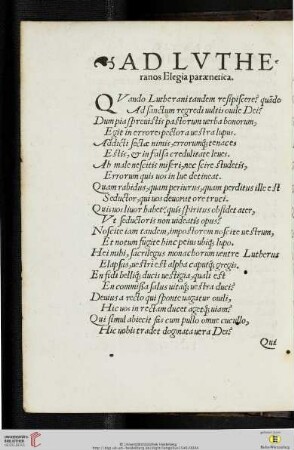 ☙AD LVTHE-
ranos Elegia parænetica.
QVando Lutherani tandem resipiscere? quãdo
Ad sanctum regredi uultis ouile Dei?
Dum pia spreuistis pastorum uerba bonorum,
Egit in errores pectora uestra lupus.
Addicti sectæ nimis, errorumq; tenaces
Estis, & in falsa credulitate leues.
Ah male nescitis miseri, nec scire studetis,
Errorum quis uos in lue detineat.
Quam rabidus, quam periurus, quam perditus ille est
Seductor, qui uos deuorat ore truci.
Quis uos liuor habet, quis spiritus obsidet ater,
Vt seductoris non uideatis opus?
Noscite iam tandem, impostorem noscite uestrum,
Et notum fugite hinc peius ubiq; lupo.
Hei mihi, sacrilegus monachorum uentre Lutherus
Elapsus, uestri est alpha caputq; gregis.
En fidi belliq; ducis uestigia, quali est
En commissa salus utiq; uestra duci?
Deuius a recto qui sponte uagatur ouili,
Hic uos in rectam ducet agetq; uiam?
Qui simul abiecit scis cum pullo omne cucullo,
Hic uobis tradet dogmata uera Dei?
Qui